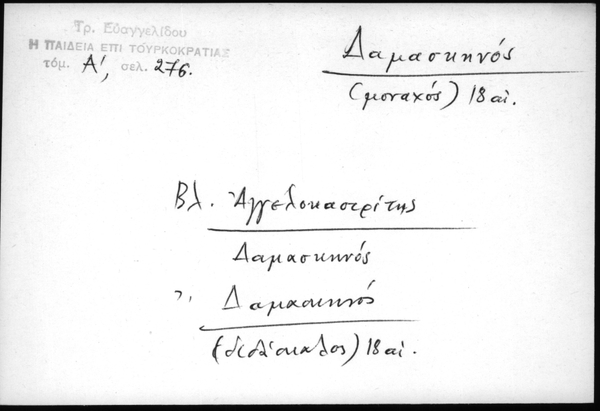 Τρ. Εὐαγγελίδου
Η ΠΑΙΔΕΙΑ ΕΠΙ ΤΟΥΡΚΟΚΡΑΤΙΑΣ
τόμ. Α', σελ. 276.
Δαμασκηνός
(μοναχός) 18 αἰ.
Βλ. Ἀγγελοκαστρίτης
Δαμασκηνός
". Δαμασκηνός
(διδάσκαλος) 18 αἰ.